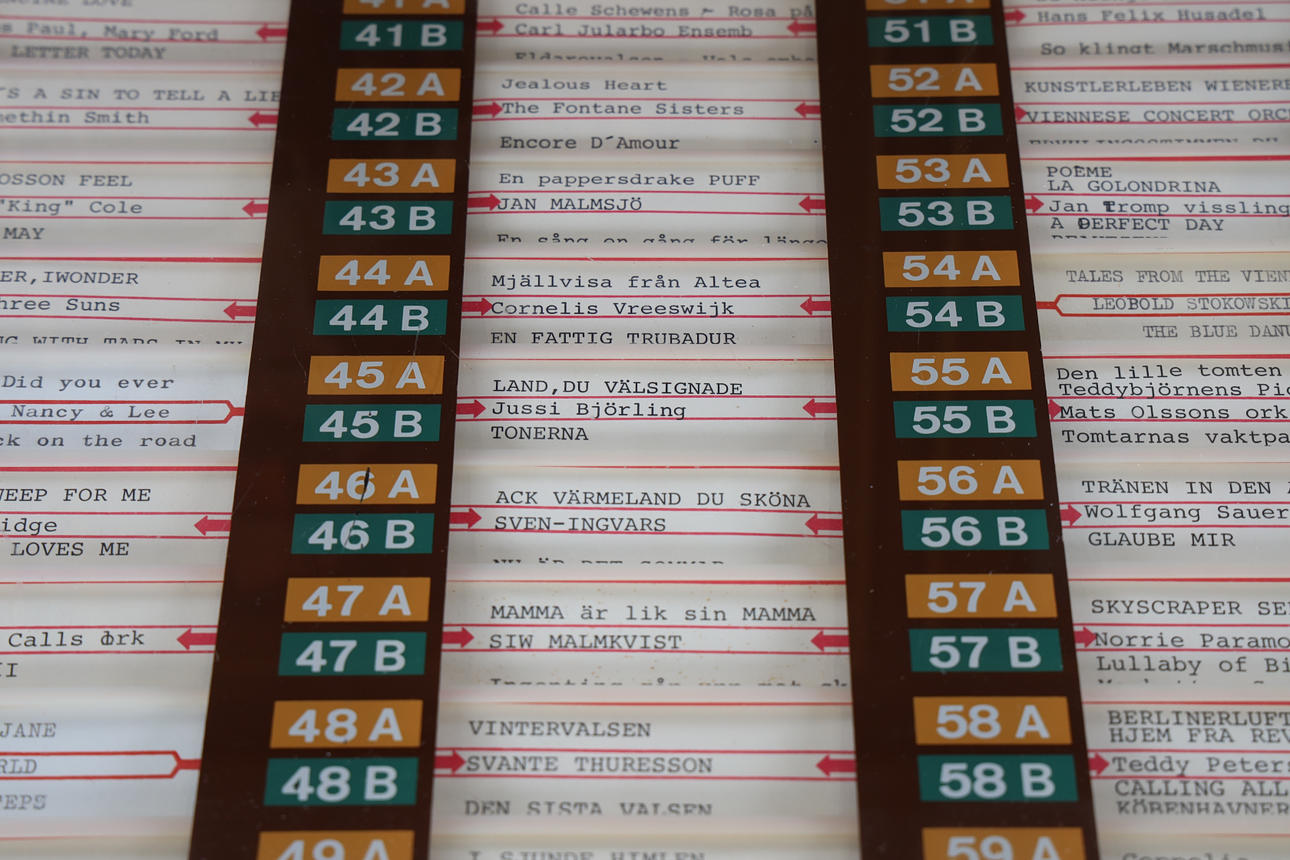 Paul, Mary Ford
LETTER TODAY
A SIN TO TELL A
Smith
FEEL
"King" Cole
MAY
Suns
Did you ever
Nancy & Lee
on the road
FOR ME
LOVES ME
Calls
JANE
41 A
41 B
42 A
42 B
43 A
43 B
44 A
44 B
45 A
45 B
46 A
46 B
47 A
47 B
48 A
48 B
49 A
Calle Schewens - Rosa på
Carl Jularbo Ensemb
Jealous Heart
The Fontane Sisters
Encore D´Amour
En pappersdrake PUFF
JAN MALMSJÖ
En sång en gång för länge
Mjällvisa från Altea
Cornelis Vreeswijk
EN FATTIG TRUBADUR
LAND,DU VÄLSIGNADE
Jussi Björling
TONERNA
ACK VÄRMELAND DU SKÖNA
SVEN-INGVARS
MAMMA är lik sin MAMMA
SIW MALMKVIST
VINTERVALSEN
SVANTE THURESSON
DEN SISTA VALSEN
I SJUNDE HIMLEN
51 A
51 B
52 A
52 B
53 A
53 B
54 A
54 B
55 A
55 B
56 A
56 B
57 A
57 B
58 A
58 B
59 A
Hans Felix Husadel
So klingt Marschmusi
KUNSTLERLEBEN WIENERB
VIENNESE CONCERT ORC
POÈME
LA GOLONDRINA
Jan Tromp vissling
A PERFECT DAY
TALES FROM THE VIEN
LEOBOLD STOKOWSKI
THE BLUE DANU
Den lille tomten
Teddybjörnens Pic
Mats Olssons ork
Tomtarnas vaktpa
TRÄNEN IN DEN
Wolfgang Sauer
GLAUBE MIR
SKYSCRAPER SE
Norrie Paramo
Lullaby of Bi
BERLINERLUFT
HJEM FRA REV
Teddy Peters
CALLING ALL
KÖBENHAVNER